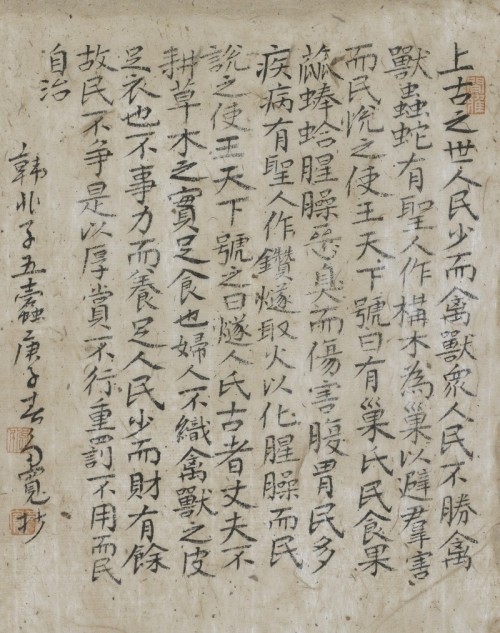 上古之世人民少而禽獸衆人民不勝禽
獸蟲蛇有聖人作構木為巢以避羣害
而民悅之使王天下號曰有巢氏民食果
蓏蜯蛤腥臊惡臭而傷害腹胃民多
疾病有聖人作鑽燧取火以化腥臊而民
說之使王天下號之曰燧人氏古者丈夫不
耕草木之實足食也婦人不織禽獸之皮
足衣也不事力而養足人民少而財有餘
故民不争是以厚賞不行重罰不用而民
自治
韓非子五蠹庚子春寬抄